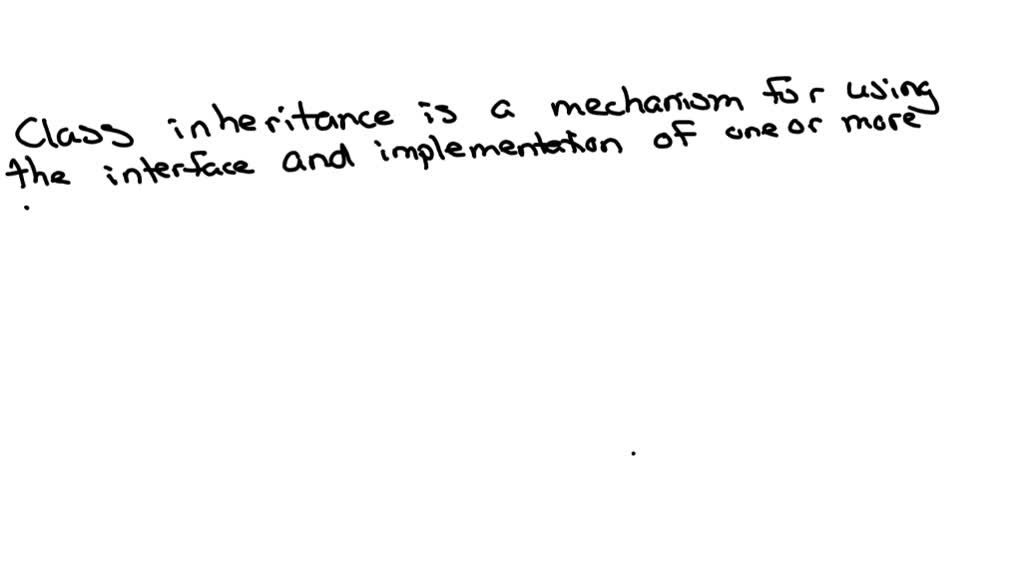 Class inheritance is a mechanism for using
the interface and implementation of one or more